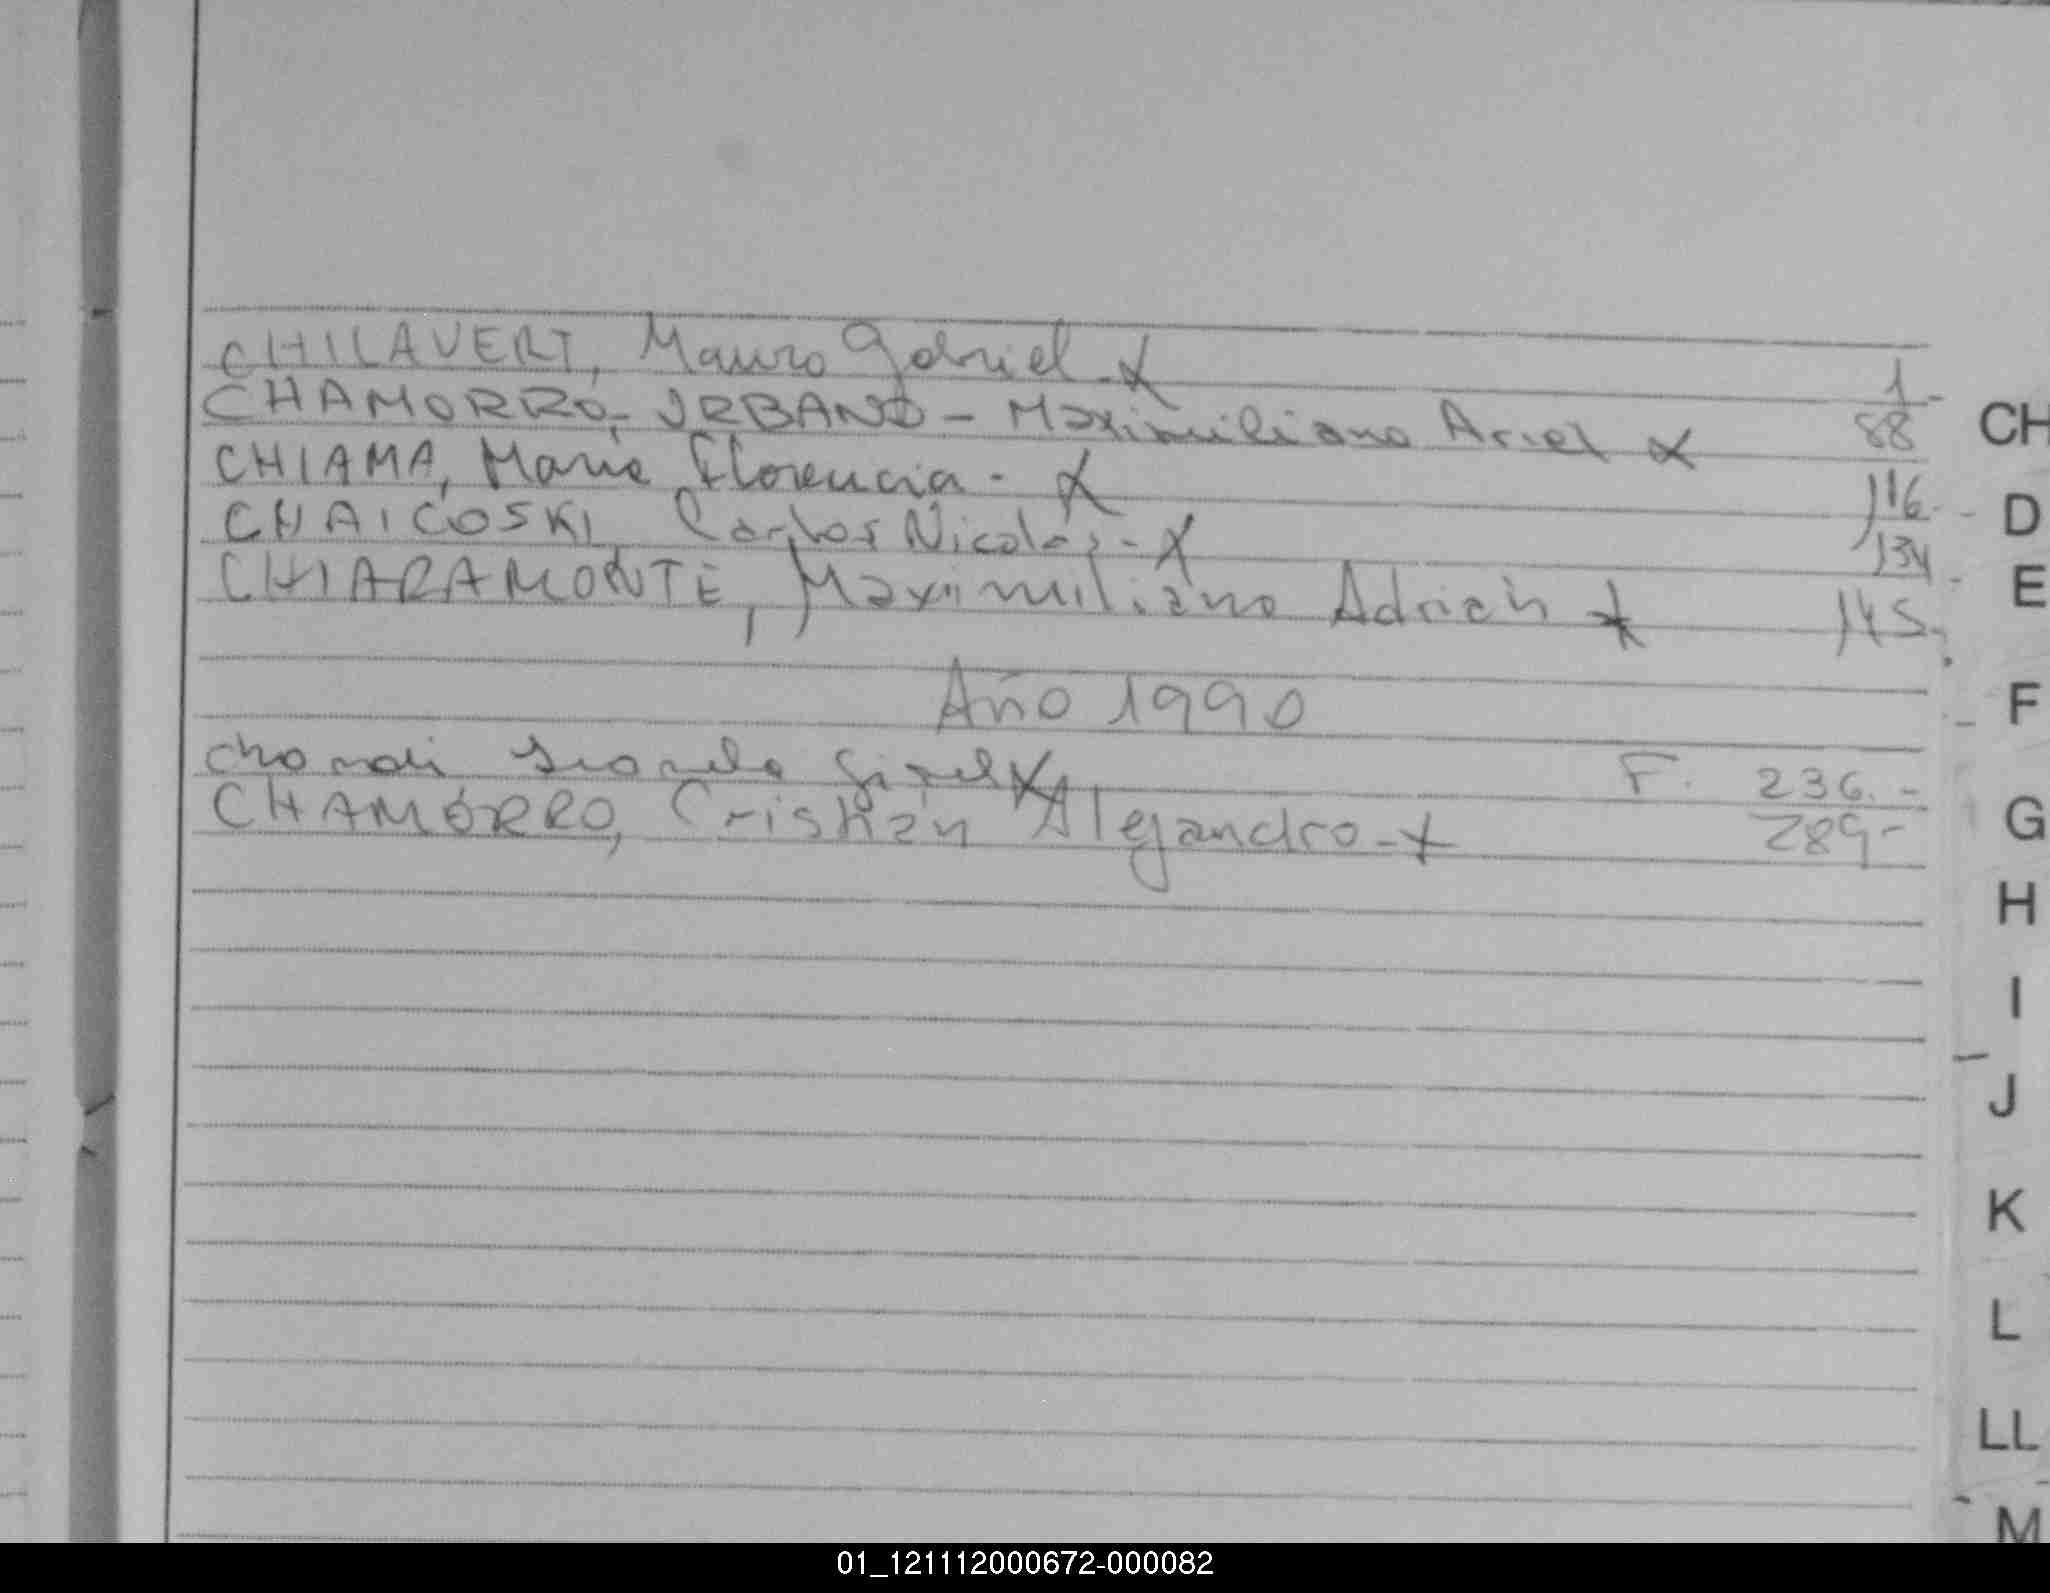 CHILAVERT, Mauro Gabriel - X 1-
CHAMORRO, URBANO - Maximiliano Ariel X 88
CHIAMA, María Florencia - X 116-
CHAICOSKI, Carlos Nicolás - X 134
CHIARAMONTE, Maximiliano Adrián X 145-
Año 1990
F. 236.-
CHAMORRO, Cristián Alejandro - X 289-
CH
D
E
F
G
H
I
J
K
L
LL
M
01_121112000672-000082